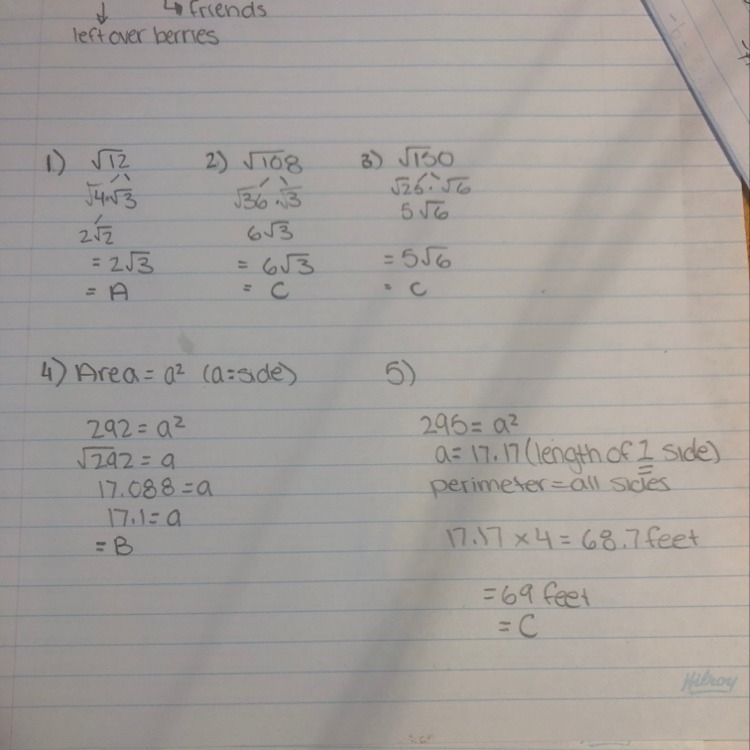 ↳ friends
↓
left over berries
1) √12
√4·√3
2√2
= 2√3
= A
2) √108
√36·√3
6√3
= 6√3
= C
3) √150
√25·√6
5√6
= 5√6
= C
4) Area = a² (a=side)
292 = a²
√292 = a
17.088 = a
17.1 = a
= B
5)
295 = a²
a = 17.17 (length of 1 side)
perimeter = all sides
17.17 × 4 = 68.7 feet
= 69 feet
= C
Hilroy